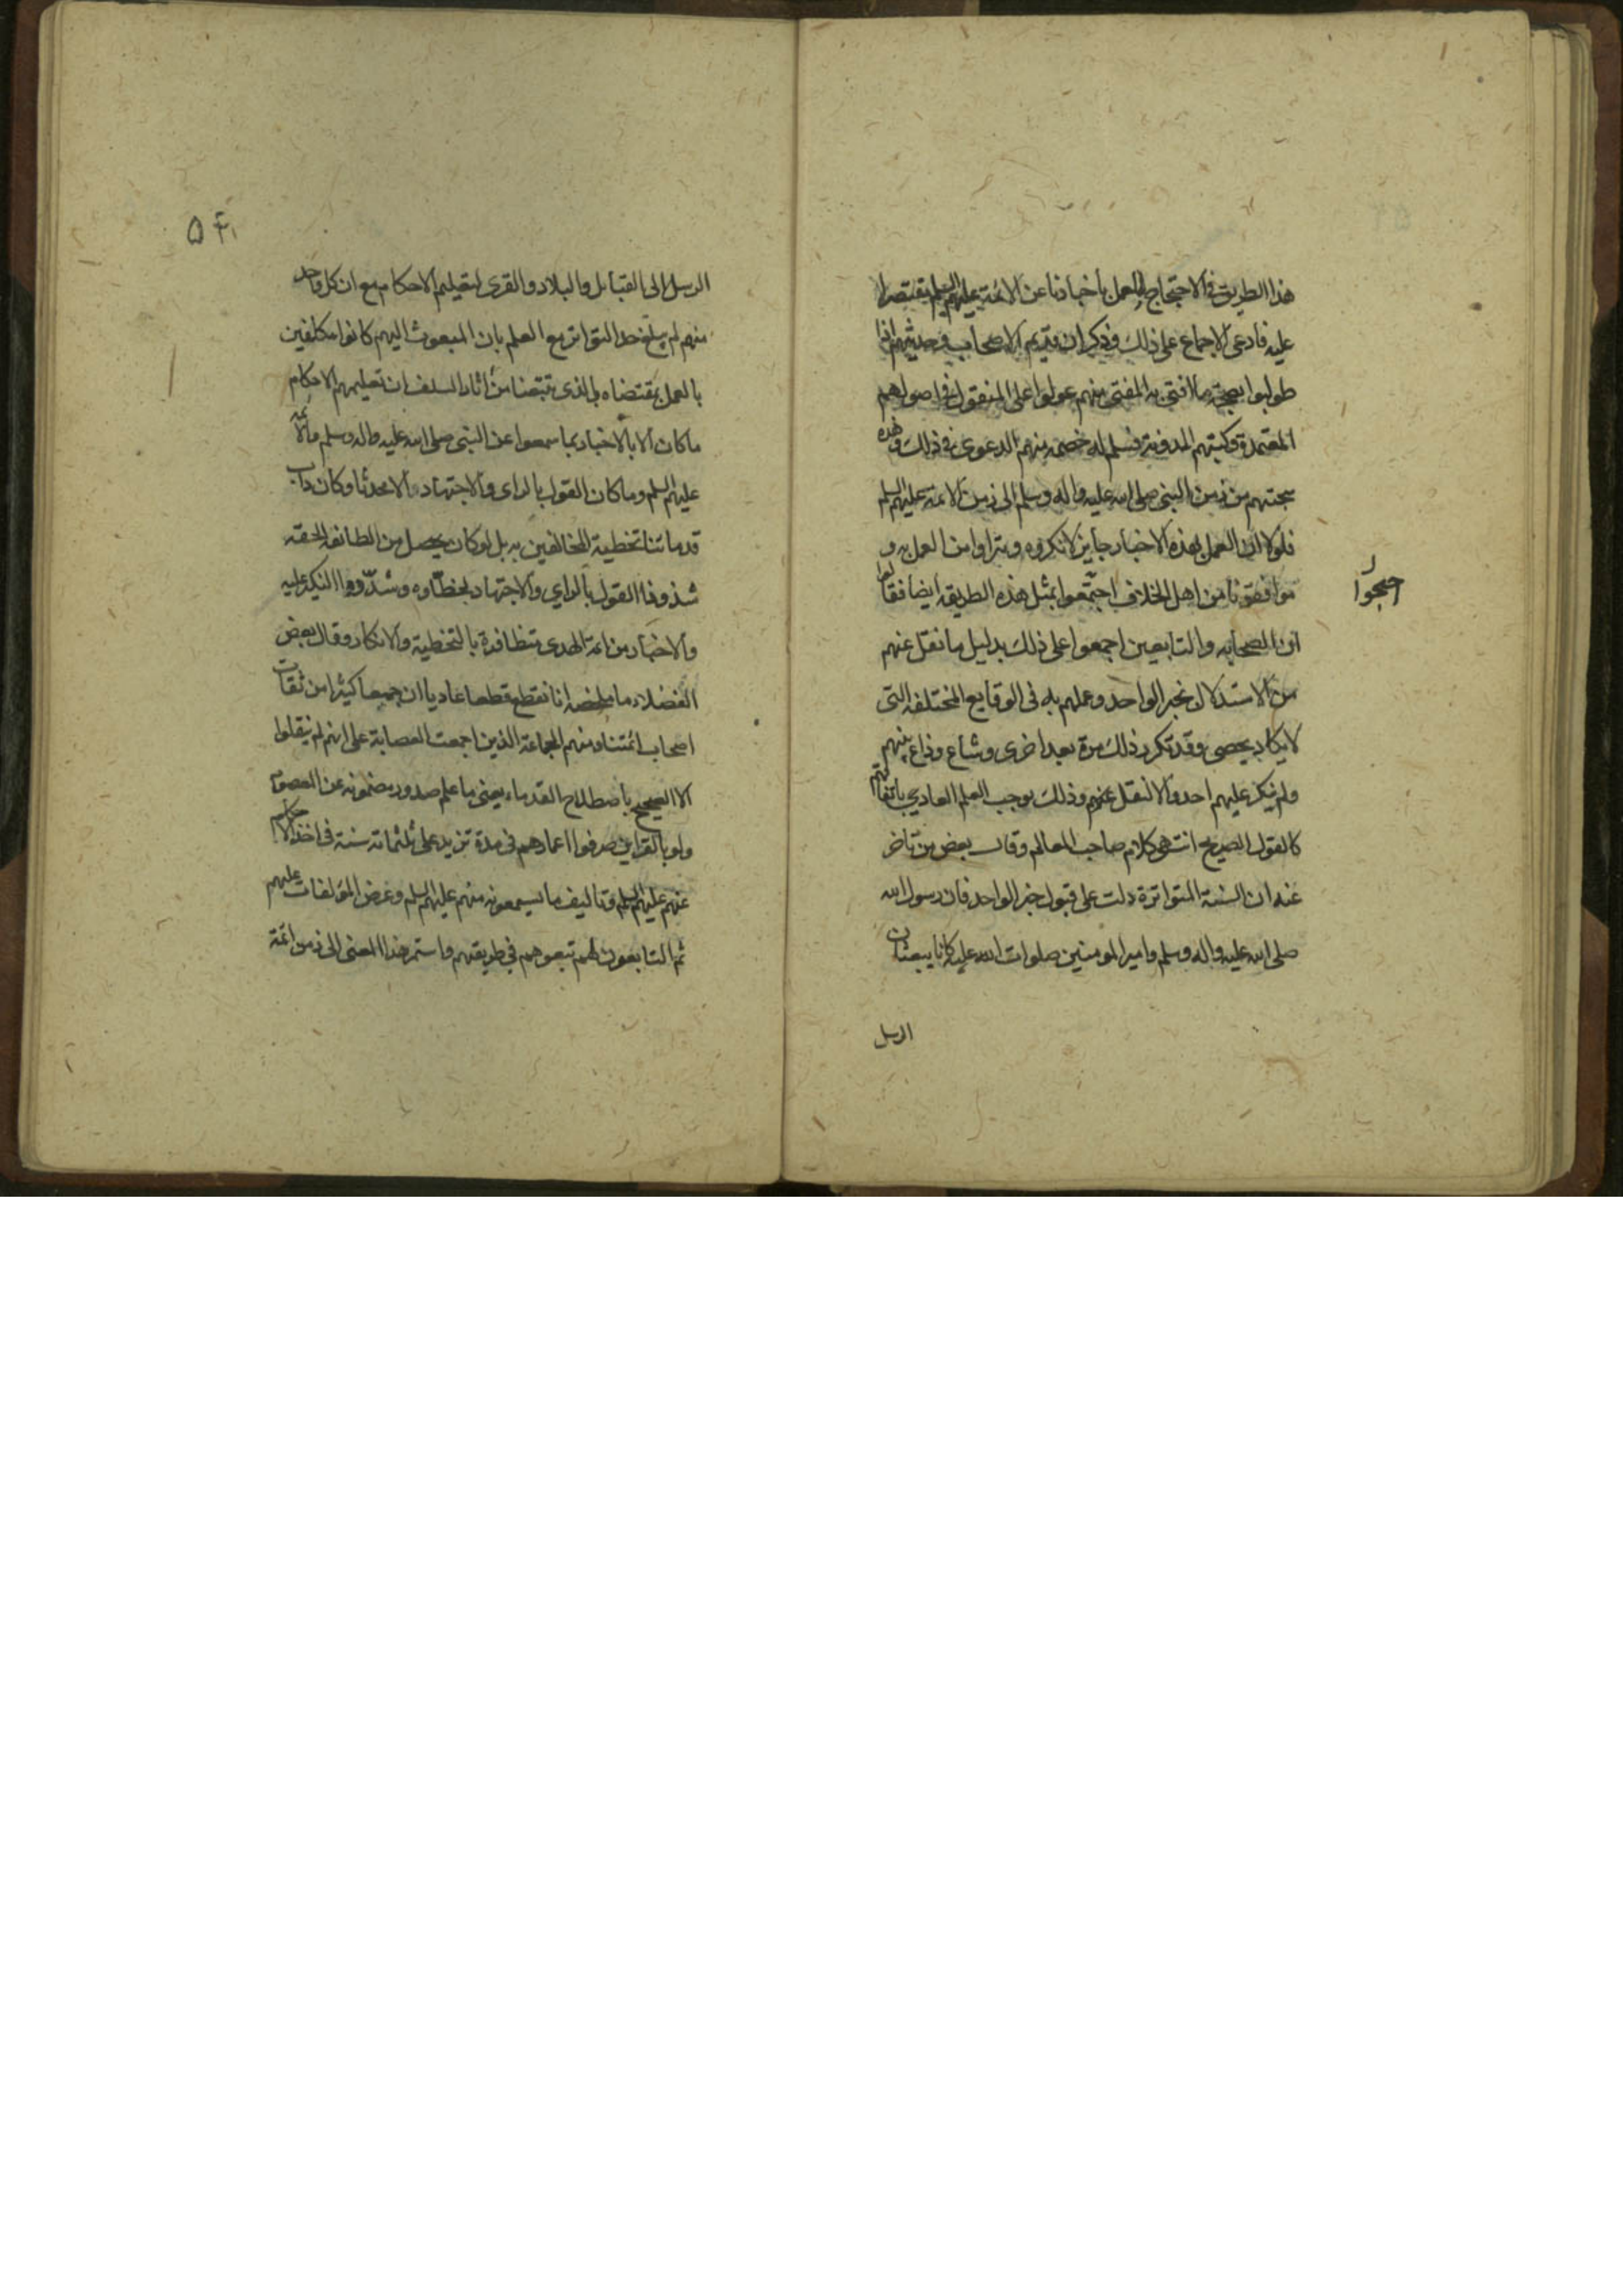 هذا الطريق في الاحتجاج للعمل بأخبارنا عن الائمة عليهم السلم مقتصرا
عليه فادعى الاجماع على ذلك وذكر ان قديم الاصحاب وحديثهم اذا
طولبوا بصحة ما افتى به المفتى منهم عولوا على المنقول في اصولهم
المعتمدة وكتبهم المدونة فسلم له خصمه منهم الدعوى في ذلك وهذه
سجتهم من زمن النبي صلى الله عليه واله وسلم الى زمن الائمة عليهم السلم
فلولا ان العمل بهذه الاخبار جايز لانكروه وتبراوا من العمل به و
موافقونا من اهل الخلاف اجتمعوا بمثل هذه الطريقه ايضا فقالوا
احتجوا ل
ان الصحابه والتابعين اجمعوا على ذلك بدليل ما نقل عنهم
من الاستدلال بخبر الواحد وعملهم به في الوقايع المختلفه التي
لا يكاد يحصى وقد تكرر ذلك مرة بعد اخرى وشاع وذاع بينهم
ولم ينكر عليهم احد والا لنقل عنهم وذلك يوجب العلم العادي باتفاقهم
كالقول الصريح انتهى كلام صاحب المعالم وقال بعض من تاخر
عنه ان السنة المتواترة دلت على قبول خبر الواحد فان رسول الله
صلى الله عليه واله وسلم وامير المومنين صلوات الله عليه كانا يبعثان
الرسل
۵۴
الرسل الى القبائل والبلاد والقرى لتعليم الاحكام مع ان كل واحد
منهم لم يبلغ حد التواتر مع العلم بان المبعوث اليهم كانوا مكلفين
بالعمل بمقتضاه بل الذي تتبعنا من اثار السلف ان تعليمهم الاحكام
ما كان الا بالاخبار بما سمعوا عن النبي صلى الله عليه واله وسلم والائمة
عليهم السلم وما كان القول بالراى والاجتهاد الا محدثا وكان داب
قدمائنا تخطية المخالفين به بل لو كان يحصل من الطائفه المحقه
شذوذا القول بالراي والاجتهاد لخطّاوه وشدّدوا النكير عليه
والاخبار من ائمة الهدى متظافرة بالتخطية والانكار وقال بعض
الفضلاء ما ملخصه انا نقطع قطعا عاديا ان جمعا كثيرا من ثقات
اصحاب ائمتنا ومنهم الجماعة الذين اجمعت العصابة على انهم لم ينقلوا
الا الصحيح باصطلاح القدماء يعنى ما علم صدور مضمونه عن المعصوم
ولو بالقراين صرفوا اعمارهم في مدة تزيد على ثلثمائة سنة في اخذ الاحكام
عنهم عليهم السلم وتاليف ما يسمعونه منهم عليهم السلم وعرض المؤلفات عليهم
ثم التابعون لهم تبعوهم في طريقتهم واستمر هذا المعنى الى زمن ائمة